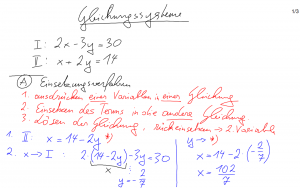 Gleichungssysteme
1/3
I: 2x - 3y = 30
II: x + 2y = 14
A Einsetzungsverfahren
1. ausdrücken einer Variablen in einer Gleichung
2. Einsetzen des Terms in die andere Gleichung
3. Lösen der Gleichung, rückeinsetzen → 2. Variable
1. II: x = 14 - 2y *)
2. x → I: 2·(14 - 2y) - 3y = 30
x
y = - 2/7
y → *)
x = 14 - 2·(- 2/7)
x = 102/7